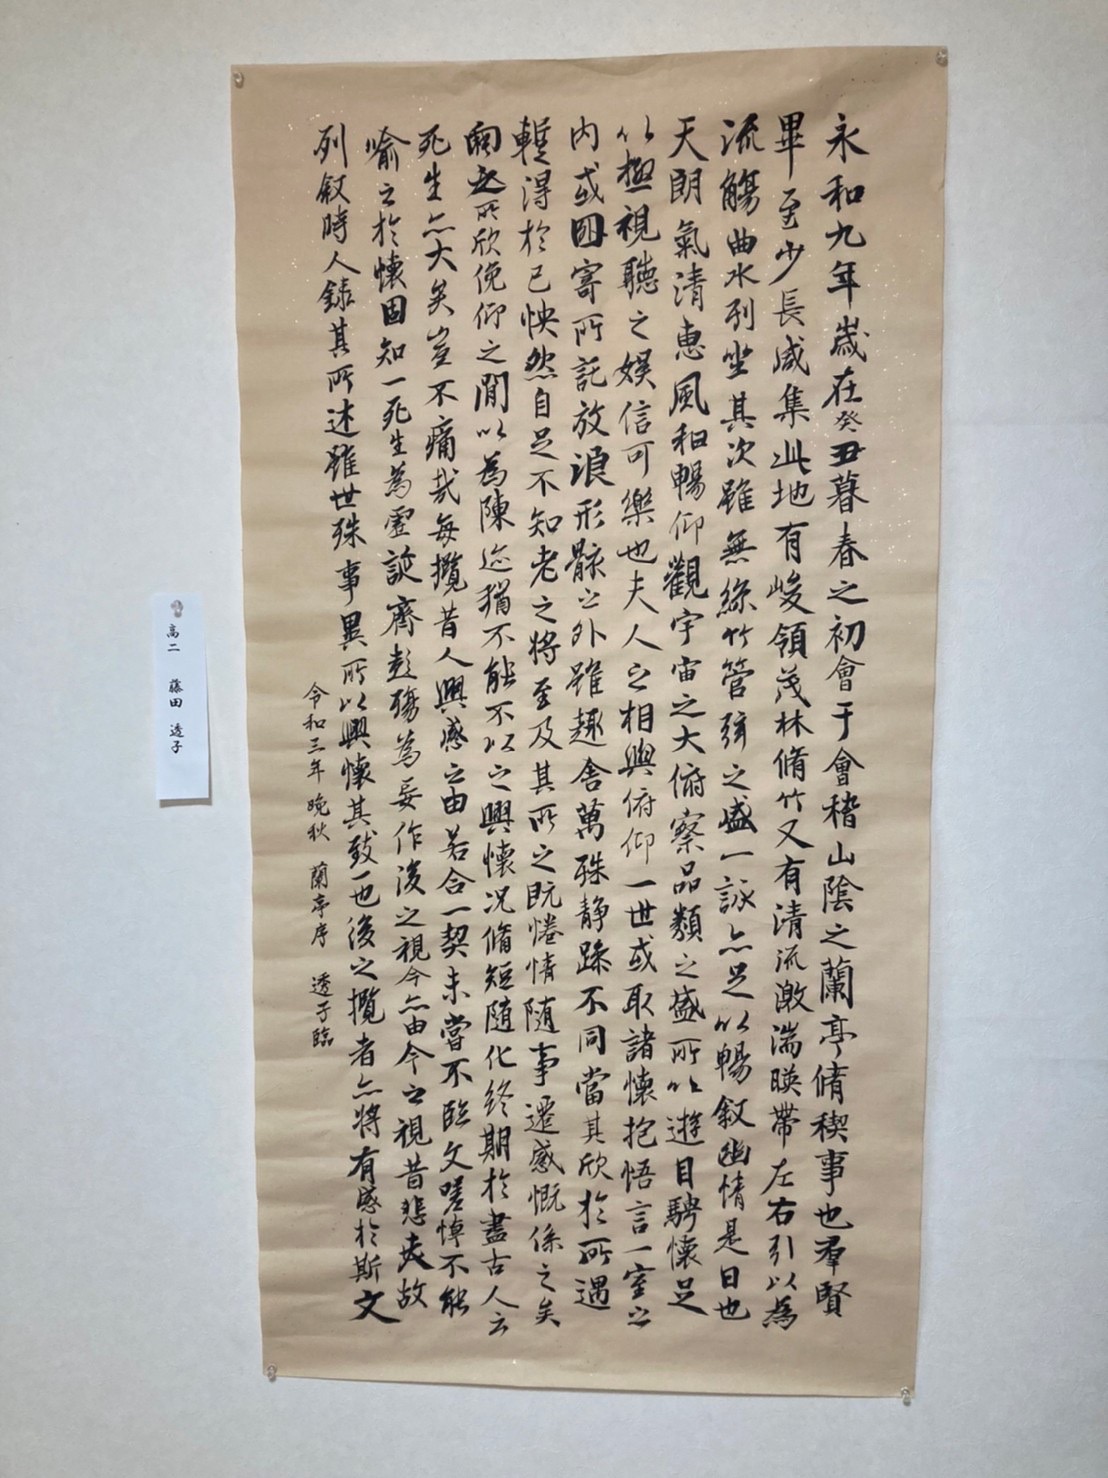 永和九年歲在癸丑暮春之初會于會稽山陰之蘭亭脩稧事也羣賢
畢至少長咸集此地有峻領茂林脩竹又有清流激湍暎帶左右引以為
流觴曲水列坐其次雖無絲竹管弦之盛一詠亦足以暢叙幽情是日也
天朗氣清惠風和暢仰觀宇宙之大俯察品類之盛所以遊目騁懷足
以極視聽之娛信可樂也夫人之相與俯仰一世或取諸懷抱悟言一室之
內或因寄所託放浪形骸之外雖趣舍萬殊静躁不同當其欣於所遇
蹔得於己怏然自足不知老之將至及其所之既惓情隨事遷感慨係之矣
向之所欣俛仰之閒以為陳迹猶不能不以之興懷況脩短隨化終期於盡古人云
死生亦大矣豈不痛哉每攬昔人興感之由若合一契未嘗不臨文嗟悼不能
喻之於懷固知一死生為虛誕齊彭殤為妄作後之視今亦由今之視昔悲夫故
列叙時人錄其所述雖世殊事異所以興懷其致一也後之攬者亦將有感於斯文
令和三年 晩秋 蘭亭序 透子臨
高二 藤田 透子